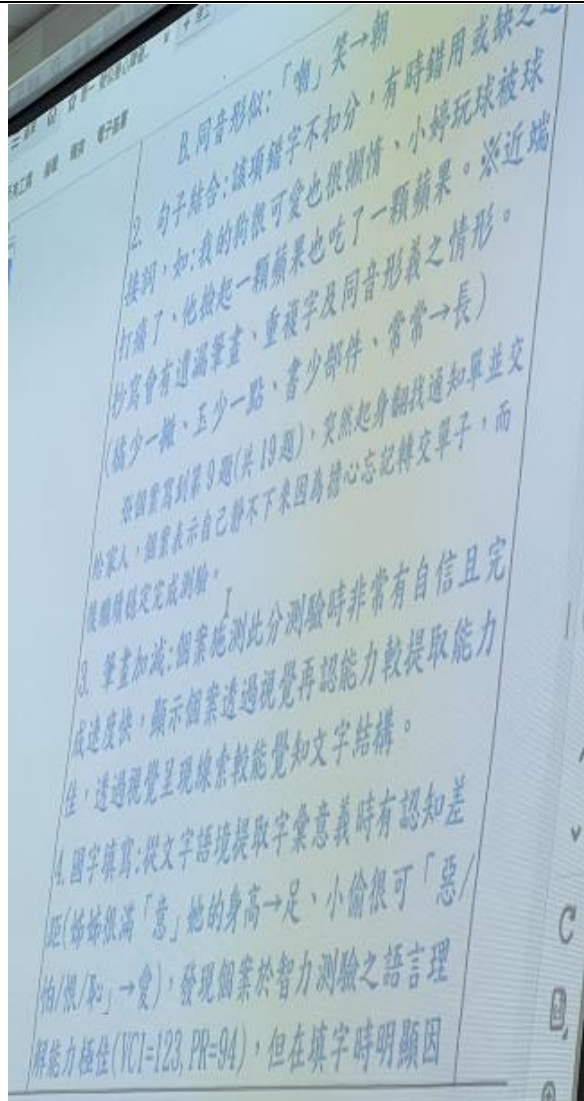 B.同音形似:「嘲」笑→朝
2. 句子結合:該項錯字不扣分，有時錯用或缺乏連
接詞，如:我的狗很可愛也很懶惰、小婷玩球被球
打痛了、他撿起一顆蘋果也吃了一顆蘋果。※近端
抄寫會有遺漏筆畫、重複字及同音形義之情形。
少一撇、玉少一點、書少部件、常常→長)
個案寫到第9題(共19題)，突然起身翻找通知單並交
給家人，個案表示自己靜不下來因為擔心忘記轉交單子，而
後繼續穩定完成測驗。
3. 筆畫加減:個案施測此分測驗時非常有自信且完
成速度快，顯示個案透過視覺再認能力較提取能力
佳，透過視覺呈現線索較能覺知文字結構。
4.國字填寫:從文字語境提取字彙意義時有認知差
距(姊姊很滿「意」她的身高→足、小偷很可「惡/
怕/恨/恥」→愛)，發現個案於智力測驗之語言理
解能力極佳(VCI=123,PR=94)，但在填字時明顯因